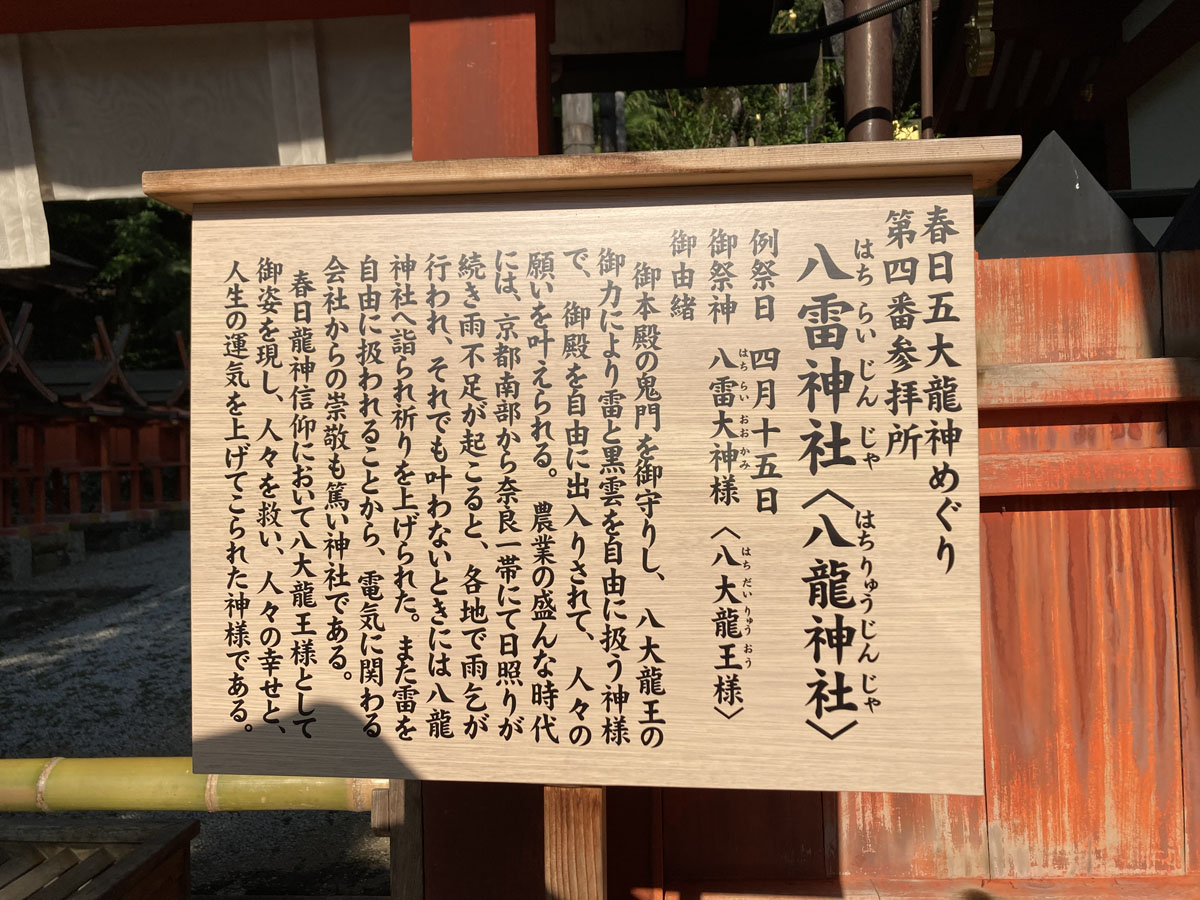 春日五大龍神めぐり
第四番参拝所
八雷神社〈八龍神社〉
はち らい じん じゃ はちりゅうじんじゃ
例祭日 四月十五日
御祭神 八雷大神様 〈八大龍王様〉
はち らい おおかみ はち だい りゅう おう
御由緒
御本殿の鬼門を御守りし、八大龍王の
御力により雷と黒雲を自由に扱う神様
で、御殿を自由に出入りされて、人々の
願いを叶えられる。農業の盛んな時代
には、京都南部から奈良一帯にて日照りが
続き雨不足が起こると、各地で雨乞が
行われ、それでも叶わないときには八龍
神社へ詣られ祈りを上げられた。また雷を
自由に扱われることから、電気に関わる
会社からの崇敬も篤い神社である。
春日龍神信仰において八大龍王様として
御姿を現し、人々を救い、人々の幸せと、
人生の運気を上げてこられた神様である。